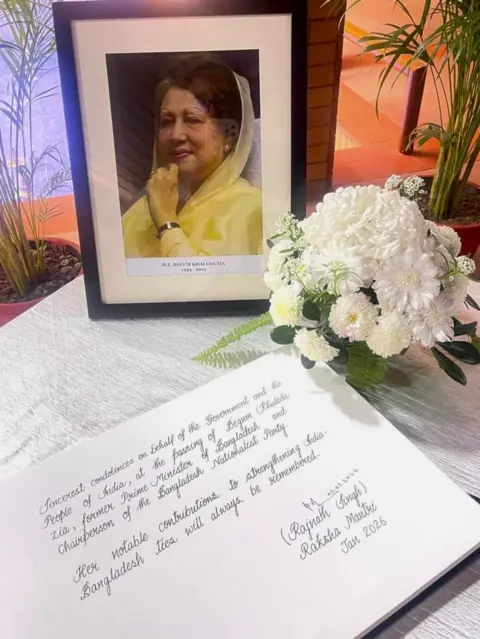 H.E. BEGUM KHALEDA ZIA
Sincerest condolences on behalf of the Government and the
People of India, at the passing of Begum Khaleda
Zia, former Prime Minister of Bangladesh and
Chairperson of the Bangladesh Nationalist Party
Her notable contributions to strengthening India-
Bangladesh ties will always be remembered.
(Rajnath Singh)
Raksha Mantri
Jan 2026